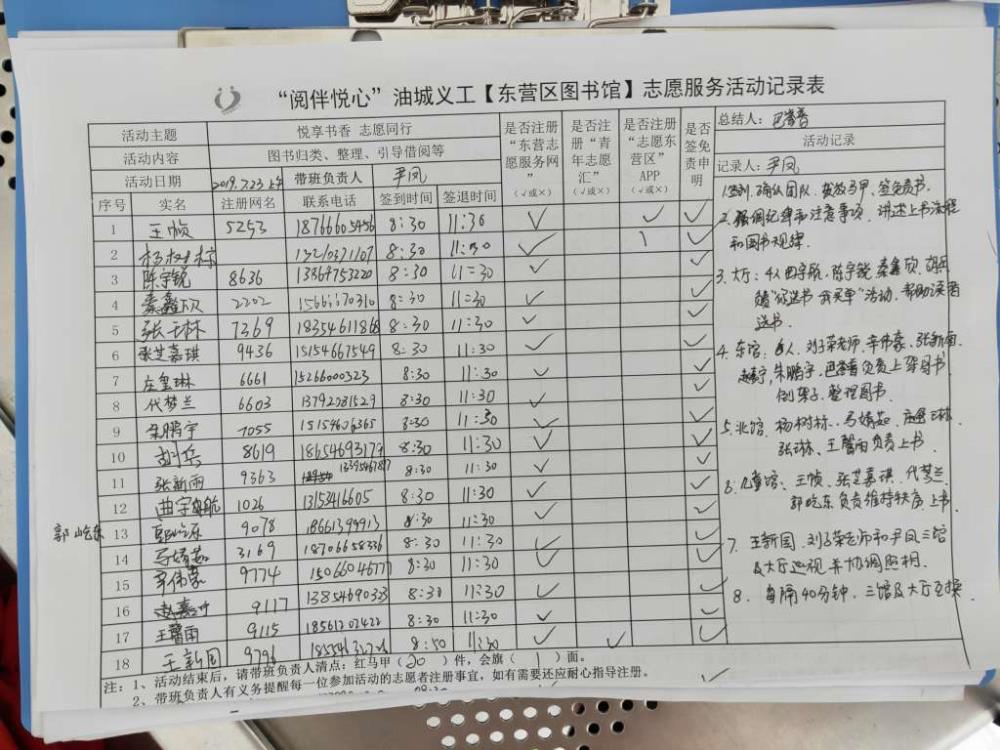 “阅伴悦心”油城义工【东营区图书馆】志愿服务活动记录表
活动主题 悦享书香 志愿同行 是否注册“东营志愿服务网”（√或×） 是否注册“青年志愿汇”（√或×） 是否注册“志愿东营区”APP（√或×） 是否签免责申明 总结人：巴馨香
活动内容 图书归类、整理、引导借阅等 活动记录
活动日期 2019.7.23上午 带班负责人 尹凤 记录人：尹凤
序号 实名 注册网名 联系电话 签到时间 签退时间
1 王帧 5253 18766605456 8:30 11:30 √ √ √
2 杨树标 8:30 11:30 √ √
3 陈宇锐 8636 13369753220 8:30 11=30 √ √
4 秦鑫欣 2202 8:30 11=30 √ √
5 张 林 7369 18354611868 8:30 11:30 √ √
6 张芝嘉琪 9436 15154667549 8:30 11:30 √ √
7 庄玺琳 6661 15266000323 8:30 11:30 √ √
8 代梦兰 6603 13792081529 8:30 11:30 √ √
9 朱鹏宇 7055 15154606365 8:30 11:30 √ √
10 胡 兵 8619 18654693179 8:30 11:30 √ √
11 张新雨 9363 8:30 11:30 √ √
12 曲宇航 1026 13153416605 8:30 11:30 √ √
郭屹东 13 郭屹东 9078 18661399913 8:30 11:30 √ √
14 马婧茹 3169 18706658336 8:30 11:30 √ √
15 辛伟豪 9774 8:30 11:30 √ √
16 赵嘉 9117 13854690333 8:30 11:30 √ √
17 王馨雨 9115 18561202422 8:30 11:30 √ √
18 王新国 9796 8:50 11:30 √ √ √
1.签到、确认团队、发放马甲、签免责书.
2、强调纪律和注意事项、讲述上书流程
和图书规律.
3、大厅：4人曲宇航、陈宇锐、秦鑫欣、
“你选书 我买单”活动、帮助读者
选书.
4、东馆：6人、刘子荣老师、辛伟豪、张新雨、
朱鹏宇、巴馨香负责上架图书
倒架子、整理图书.
5、北馆、杨树标、马婧茹、庄玺琳
张 林、王馨雨负责上书.
6、儿童馆、王帧、张芝嘉琪、代梦兰
郭屹东负责维持秩序、上书
7、王新国、刘子荣老师和尹凤三馆
及大厅巡视并协调照相.
8、每隔40分钟、三馆及大厅互换.
注：1、活动结束后，请带班负责人清点：红马甲（20）件，会旗（1）面。
2、带班负责人有义务提醒每一位参加活动的志愿者注册事宜，如有需要还应耐心指导注册。